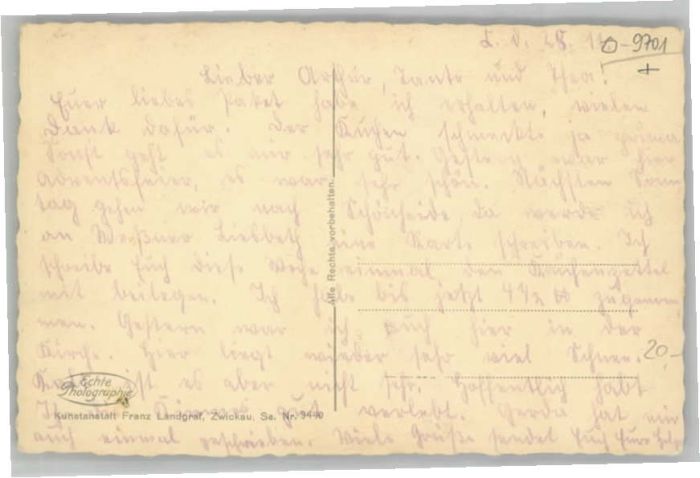 L. d. 28. 11
D-9701
+
Lieber Arthur, Tante und Thea!
Euer liebes Paket habe ich erhalten, vielen
Dank dafür. Der Kuchen schmeckte ja prima
Sonst geht es mir sehr gut. Gestern war hier
Adventsfeier, es war sehr schön. Nächsten Sonn
tag gehen wir nach Schönheide, da werde ich
an Liesbeth eine Karte schreiben. Ich
schreibe Euch diese Woche einmal den Küchenzettel
mit beilegen. Ich habe bis jetzt 4 1/2 zugenom
men. Gestern war ich auch hier in der
Kirche. Hier liegt wieder sehr viel Schnee.
20.-
ist es aber nicht sehr. Hoffentlich habt
Ihr gut verlebt. Gerda hat mir
auch einmal geschrieben. Viele Grüße sendet Euch Eure
Alle Rechte vorbehalten.
Echte
Photographie
Kunstanstalt Franz Landgraf, Zwickau, Sa. Nr. 9440